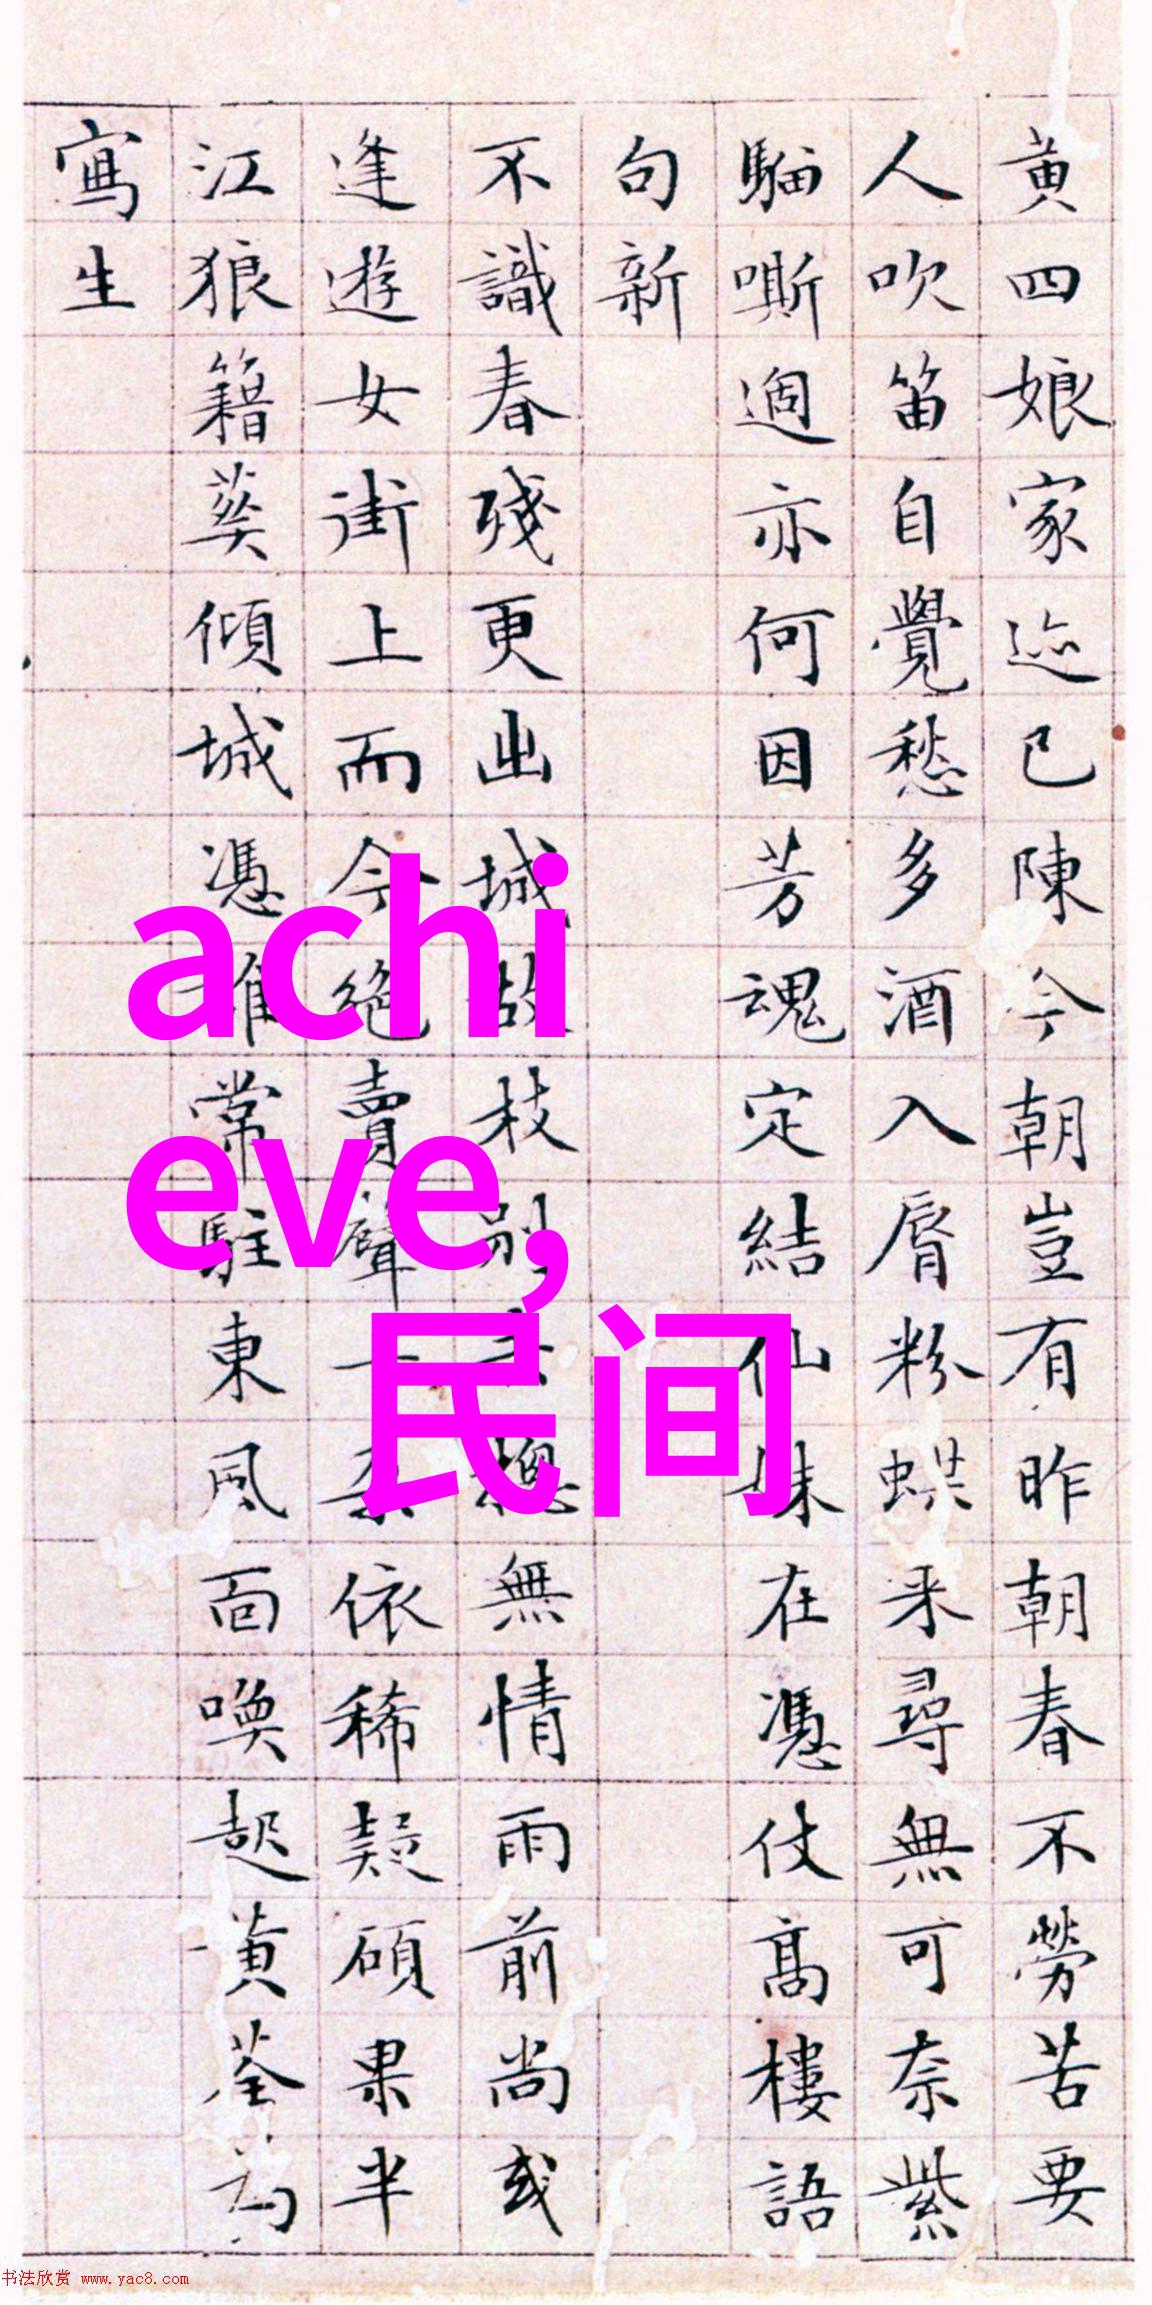 黄四娘家迹已陳今朝豈有昨朝春不勞苦要
人吹笛自覺愁多酒入脣粉蝶来尋無可奈紫
騮嘶過亦何因芳魂定結仙姝在憑仗高樓語
句新
不識春殘更出城故枝別總無情雨前尚或
逢遊女街上而今絕賣聲依稀疑碩果半
江狼籍葵傾城憑誰常駐東風面喚起黄荃為
寫生
achi
eve,
民间
书法欣赏 www.yac8.com